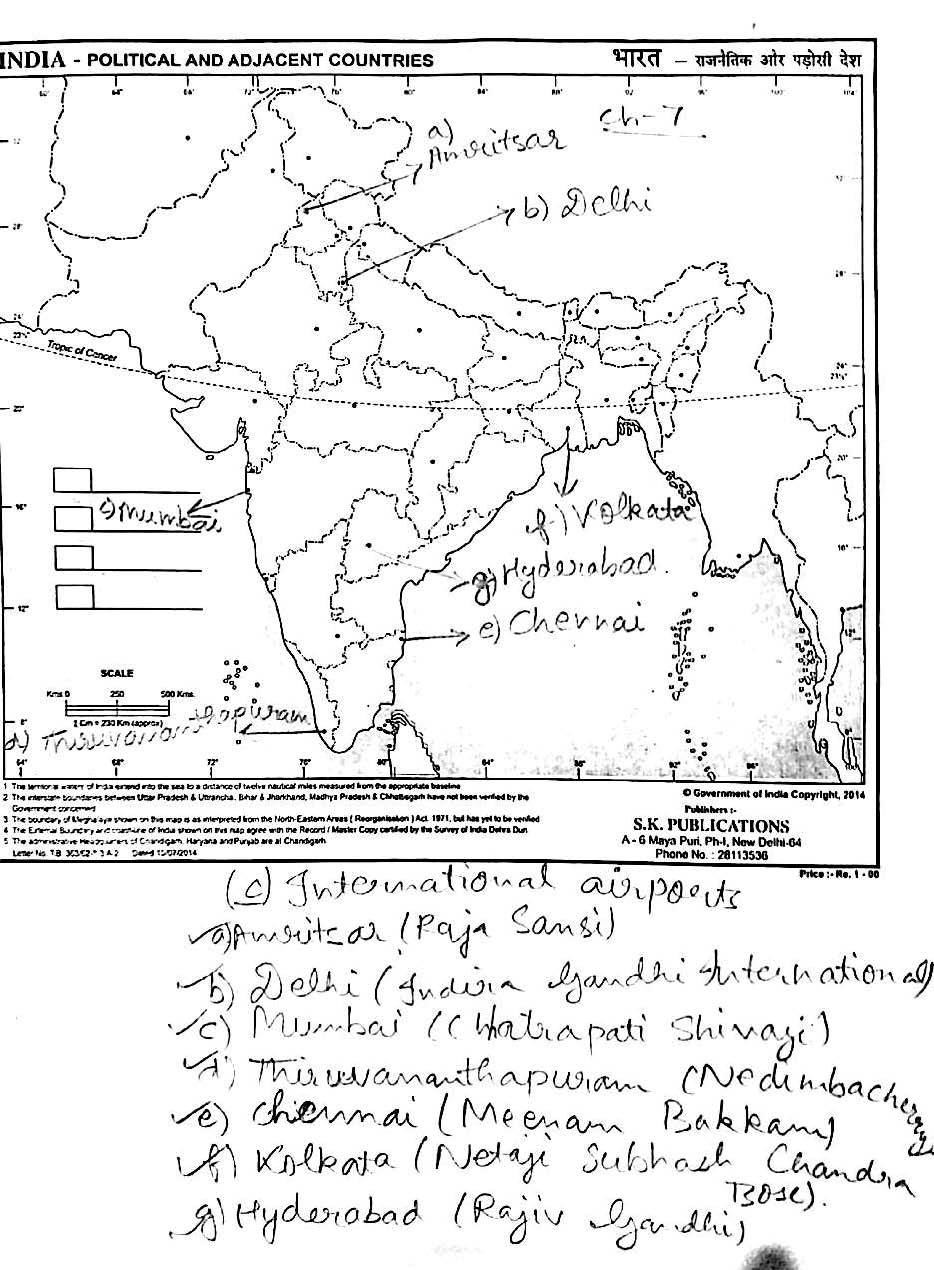 INDIA - POLITICAL AND ADJACENT COUNTRIES
भारत – राजनैतिक ओर पड़ोसी देश
Ch-7
a)
Amritsar
b) Delhi
Tropic of Cancer
c) Mumbai
f) Kolkata
g) Hyderabad
e) Chennai
SCALE
Kms 0 250 500 Kms.
1 Cm = 230 Km (approx)
d) Thiruvananthapuram
1 The territorial waters of India extend into the sea to a distance of twelve nautical miles measured from the appropriate baseline
2 The interstate boundaries between Uttar Pradesh & Uttrancha, Bihar & Jharkhand, Madhya Pradesh & Chhattisgarh have not been verified by the
Government concerned
3 The boundary of Meghalaya shown on this map is as interpreted from the North-Eastern Areas ( Reorganisation ) Act. 1971, but has yet to be verified
4 The External Boundary and coastline of India shown on this map agree with the Record / Master Copy certified by the Survey of India Dehra Dun
5 The administrative Headquarters of Chandigarh, Haryana and Punjab are at Chandigarh
© Government of India Copyright, 2014
Publishers :-
S.K. PUBLICATIONS
A - 6 Maya Puri, Ph-I, New Delhi-64
Phone No. : 28113536
Price :- Re. 1 - 00
(c) International airports
a) Amritsar (Raja Sansi)
b) Delhi (Indira Gandhi International)
c) Mumbai (Chhatrapati Shivaji)
d) Thiruvananthapuram (Nedimbacherry)
e) Chennai (Meenam Bakkam)
f) Kolkata (Netaji Subhash Chandra
Bose).
g) Hyderabad (Rajiv Gandhi)